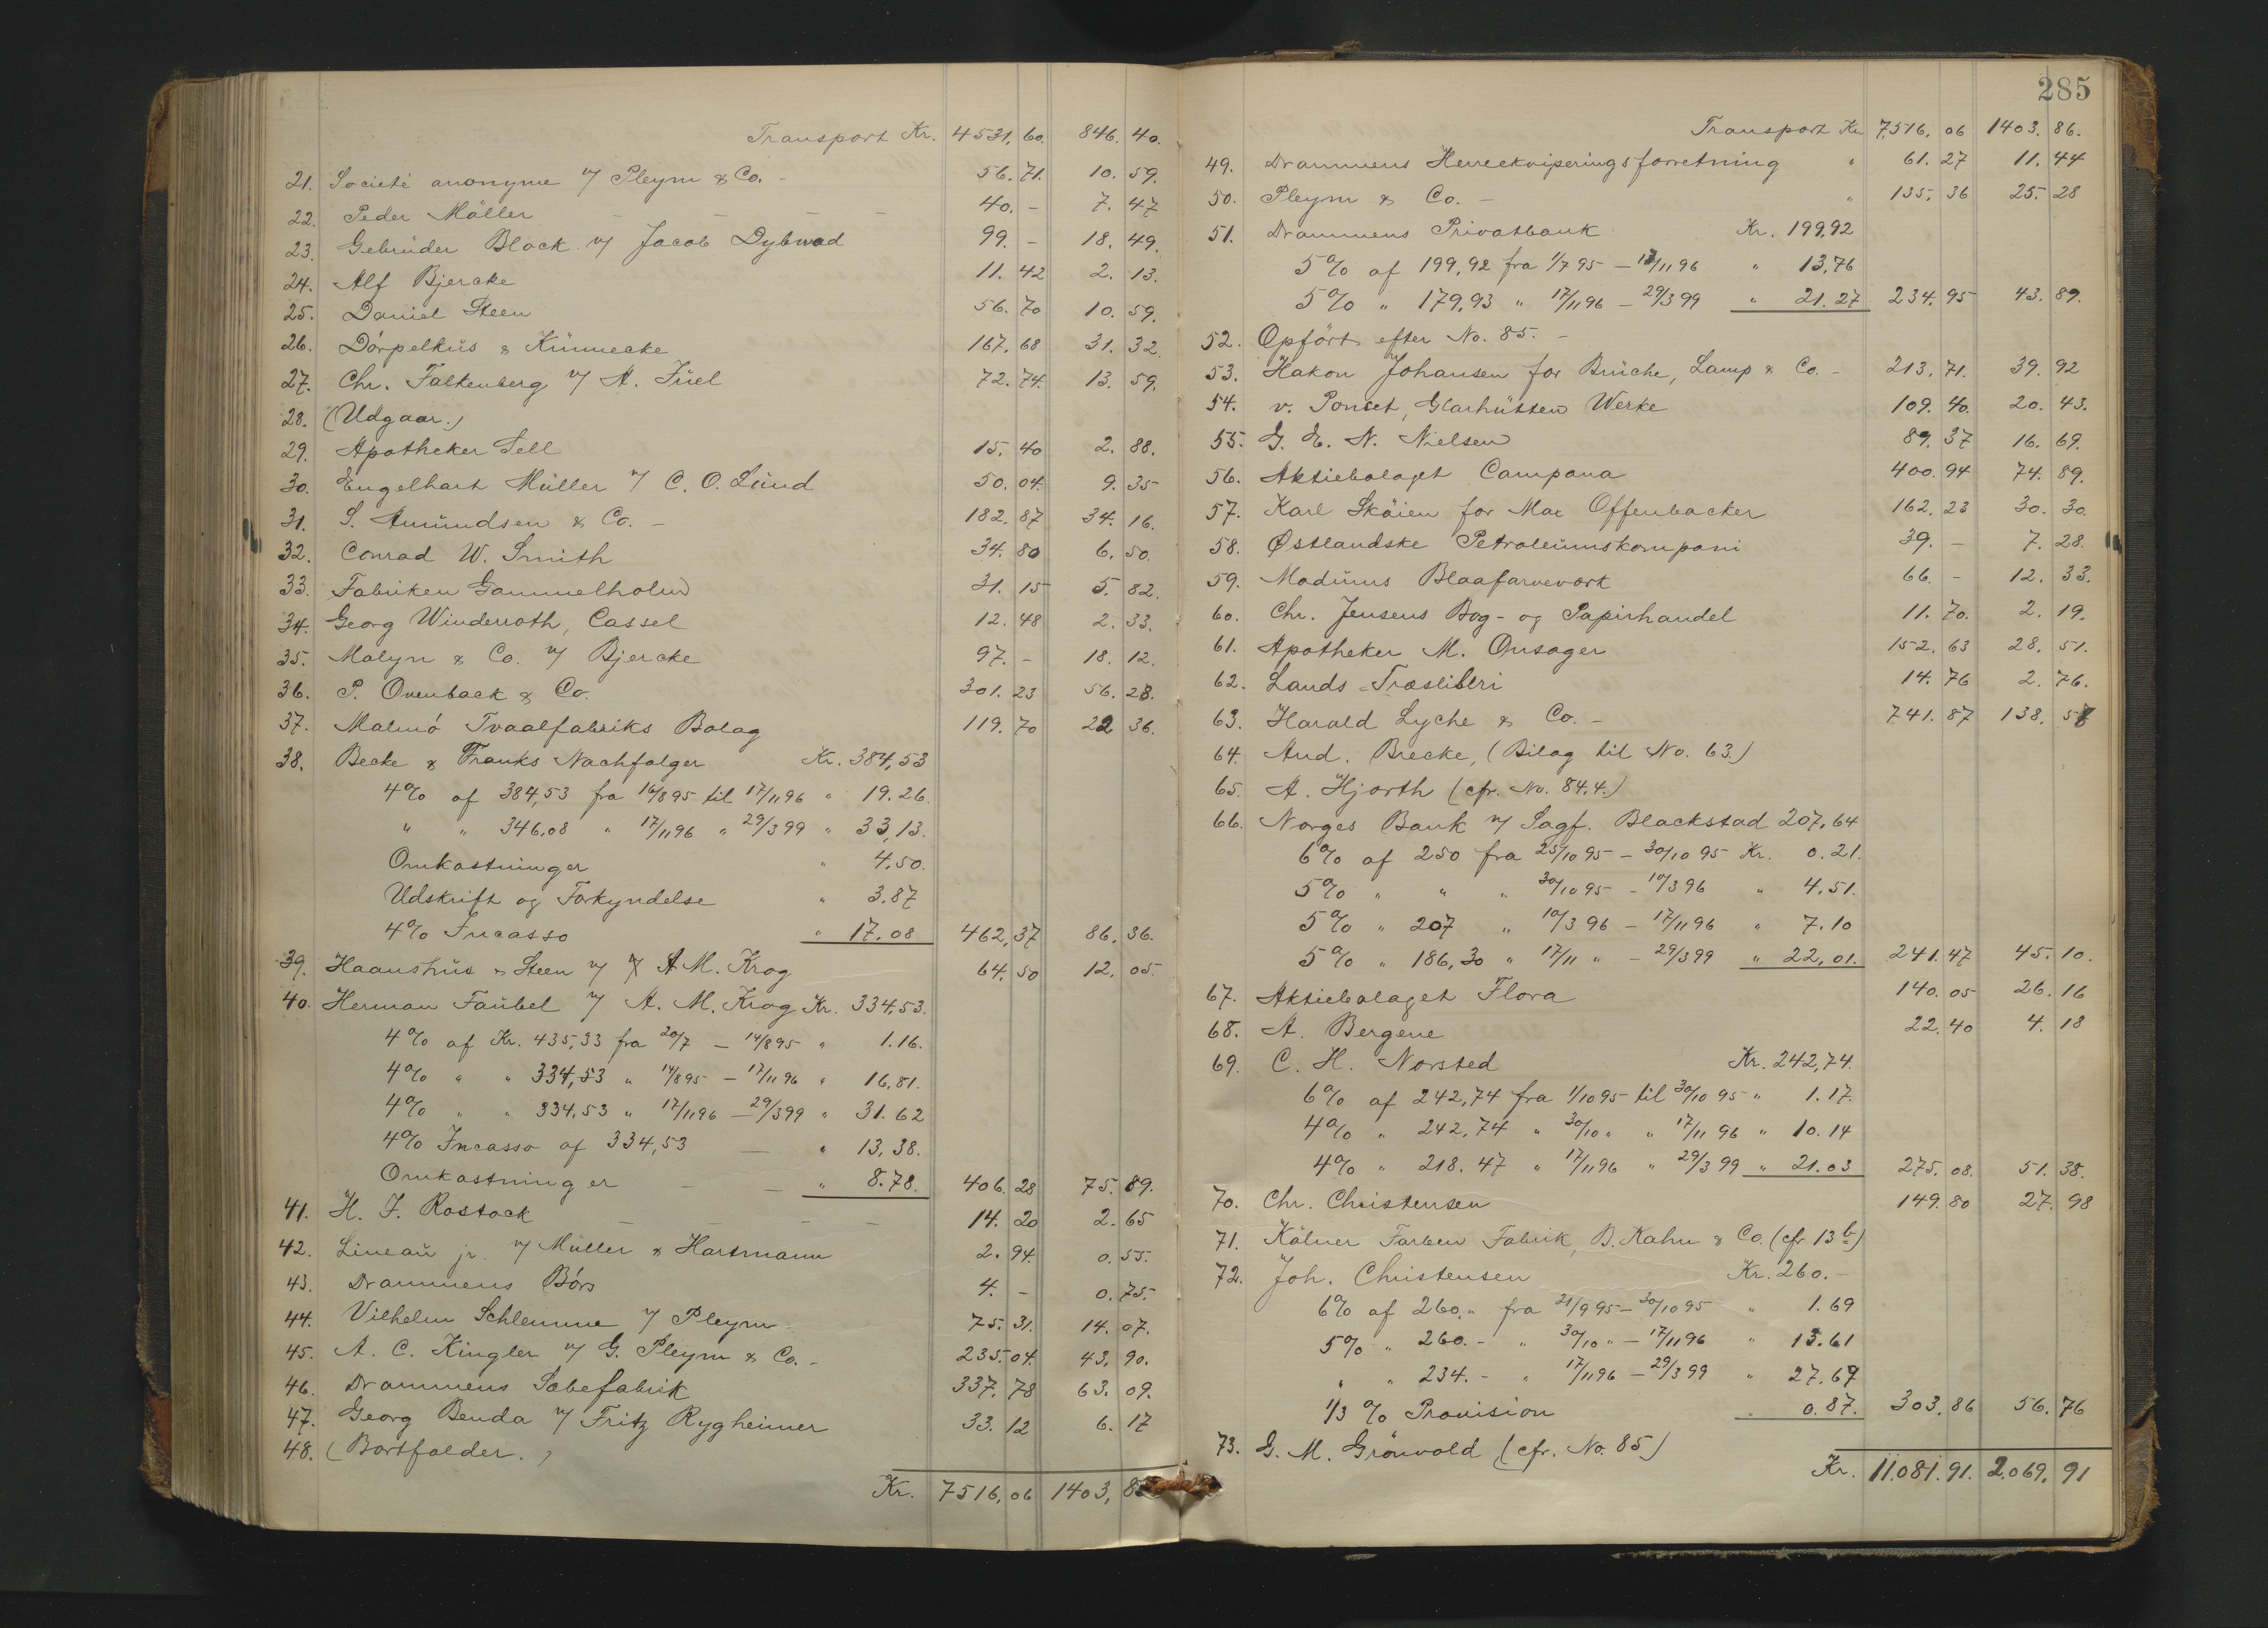 Transport Kr. 4531,60. 846.40.
21. Societé anonyme v/ Pleym & Co. - 56.71. 10.59.
22. Peder Möller - - - - 40.- 7.47
23. Gebrüder Block v/ Jacob Dybwad 99.- 18.49.
24. Alf Bjercke 11.42 2.13.
25. Daniel Steen 56.70 10.59.
26. Dörpelküs & Künnecke 167.68 31.32.
27. Chr. Falkenberg v/ A. Juel 72.74. 13.59.
28. (Udgaar.)
29. Apotheker Sell 15.40 2.88.
30. Engelhart Müller v/ C. O. Lund 50.04. 9.35
31. S. Amundsen & Co. - 182.87 34.16.
32. Conrad W. Smith 34.80 6.50.
33. Fabriken Gammelholm 31.15 5.82.
34. Georg Winderroth, Cassel 12.48 2.33.
35. Molyn & Co. v/ Bjercke 97.- 18.12.
36. P. Ovenback & Co. 301.23 56.28.
37. Malmö Tvaalfabriks Bolag 119.70 22 36.
38. Becke & Franks Nachfolger Kr. 384,53
4% af 384,53 fra 16/8 95 til 17/11 96 " 19.26.
" " 346,08 " 17/11 96 " 29/3 99 " 33,13.
Omkostninger " 4,50.
Udskrift og Forkyndelse " 3.87
4% Incasso " 17.08 462,37 86.36.
39. Haanshus & Steen v/ A. M. Krog 64.50 12.05.
40. Herman Faubel v/ A. M. Krog Kr. 334,53.
4% af Kr. 435,33 fra 20/7 - 14/8 95 " 1.16.
4% " " 334,53 " 14/8 95 - 17/11 96 " 16,81.
4% " " 334,53 " 17/11 96 - 29/3 99 " 31.62
4% Incasso af 334,53 - " 13,38.
Omkostninger - - " 8.78. 406.28 75.89.
41. H. J. Rostock - - - - 14.20 2.65
42. Lineau jr. v/ Müller & Hartmann 2.94. 0.55.
43. Drammens Börs 4.- 0.75.
44. Vilhelm Schlemme v/ Pleym - 75.31. 14.07.
45. A. C. Kingler v/ G. Pleym & Co. - 235.04. 43.90.
46. Drammens Sæbefabrik 337.78 63.09.
47. Georg Benda v/ Fritz Rygheimer 33.12 6.17
48. (Bortfalder.)
Kr. 7516,06 1403,8
285
Transport Kr. 7,516,06 1403.86.
49. Drammens Herreekviperingsforretning " 61.27 11.44
50. Pleym & Co. - " 135,36 25.28
51. Drammens Privatbank Kr. 199,92
5% af 199,92 fra 1/7 95 - 17/11 96 " 13,76
5% " 179,93 " 17/11 96 - 29/3 99 " 21.27 234.95 43.89.
52. Opfört efter No. 85. -
53. Hakon Johansen for Brüche, Lamp & Co. - 213.71. 39.92
54. v. Poncet, Glashütten Werke 109.40. 20.43.
55. G. E. N. Nielsen 89.37 16.69.
56. Aktiebolaget Campana 400.94 74.89.
57. Karl Sköien for Max Offenbacker 162.23 30.30.
58. Østlandske Petroleumskompani 39.- 7.28.
59. Modums Blaafarveværk 66.- 12.33.
60. Chr. Jensens Bog- og Papirhandel 11.70. 2.19.
61. Apotheker M. Onsager 152.63 28.51.
62. Lands-Træsliberi 14.76 2.76.
63. Harald Lyche & Co. - 741.87 138.58
64. And. Brecke, (Bilag til No. 63.)
65. A. Hjorth (cfr. No. 84,4.)
66. Norges Bank v/ Sagf. Blackstad 207,64
6% af 250 fra 25/10 95 - 30/10 95 Kr. 0.21.
5% " " " 30/10 95 - 10/3 96 " 4.51.
5% " 207 " 10/3 96 - 17/11 96 " 7.10
5% " 186,30 " 17/11 " - 29/3 99 " 22,01. 241.47 45.10.
67. Aktiebolaget Flora 140.05 26.16
68. A. Bergene 22.40 4.18
69. C. H. Norsted Kr. 242,74.
6% af 242,74 fra 1/10 95 til 30/10 95 " 1.17.
4% " 242,74 " 30/10 " " 17/11 96 " 10.14
4% " 218.47 " 17/11 96 " 29/3 99 " 21.03 275.08. 51.38.
70. Chr. Christensen 149.80 27.98
71. Kölner Farben Fabrik, B. Kahn & Co. (cfr 13 b)
72. Joh. Christensen Kr. 260.-
6% af 260." fra 21/9 95 - 30/10 95 " 1.69
5% " 260.- " 30/10 " - 17/11 96 " 13.61
" " 234.- " 17/11 96 - 29/3 99 " 27.69
1/3 % Provision " 0.87. 303,86 56.76
73. G. M. Grönvold (cfr. No. 85)
Kr. 11.081.91. 2,069.91